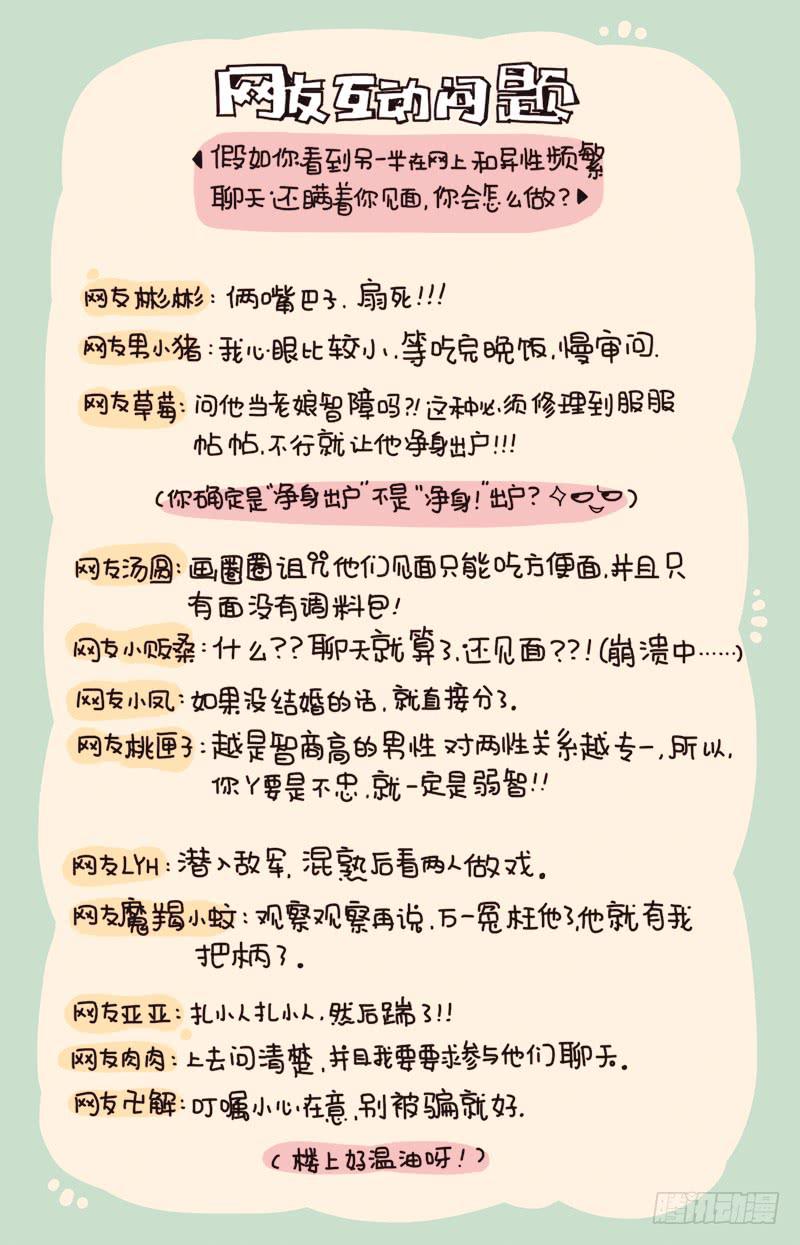 网友互动问题
假如你看到另一半在网上和异性频繁
聊天还瞒着你见面,你会怎么做?
网友彬彬:俩嘴巴子、扇死!!!
网友男小猪:我心眼比较小、等吃完晚饭,慢审问.
网友草莓:问他当老娘智障吗?!这种必须修理到服服
帖帖、不行就让他净身出户!!!
(你确定是“净身出户”不是“净身!”出户?)
网友汤圆:画圈圈诅咒他们见面只能吃方便面,并且只
有面没有调料包!
网友小贩桑:什么??聊天就算了、还见面??!(崩溃中……)
网友小凤:如果没结婚的话,就直接分了.
网友桃匣子:越是智商高的男性对两性关系越专一,所以,
你丫要是不忠、就一定是弱智!!
网友LYH:潜入敌军,混熟后看两人做戏。
网友魔羯小蚊:观察观察再说,万一冤枉他了,他就有我
把柄了。
网友亚亚:扎小人扎小人,然后踹了!!
网友肉肉:上去问清楚,并且我要要求参与他们聊天。
网友卍解:叮嘱小心在意,别被骗就好.
(楼上好温油呀!)
腾讯动漫